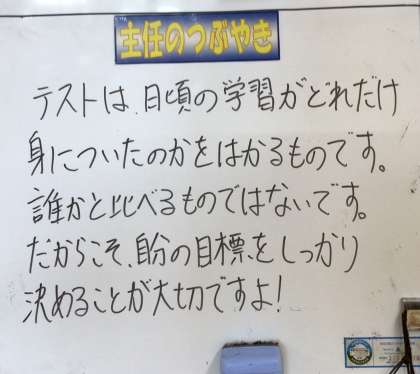 主任のつぶやき
テストは、日頃の学習がどれだけ
身についたのかをはかるものです。
誰かと比べるものではないです。
だからこそ、自分の目標をしっかり
決めることが大切ですよ!